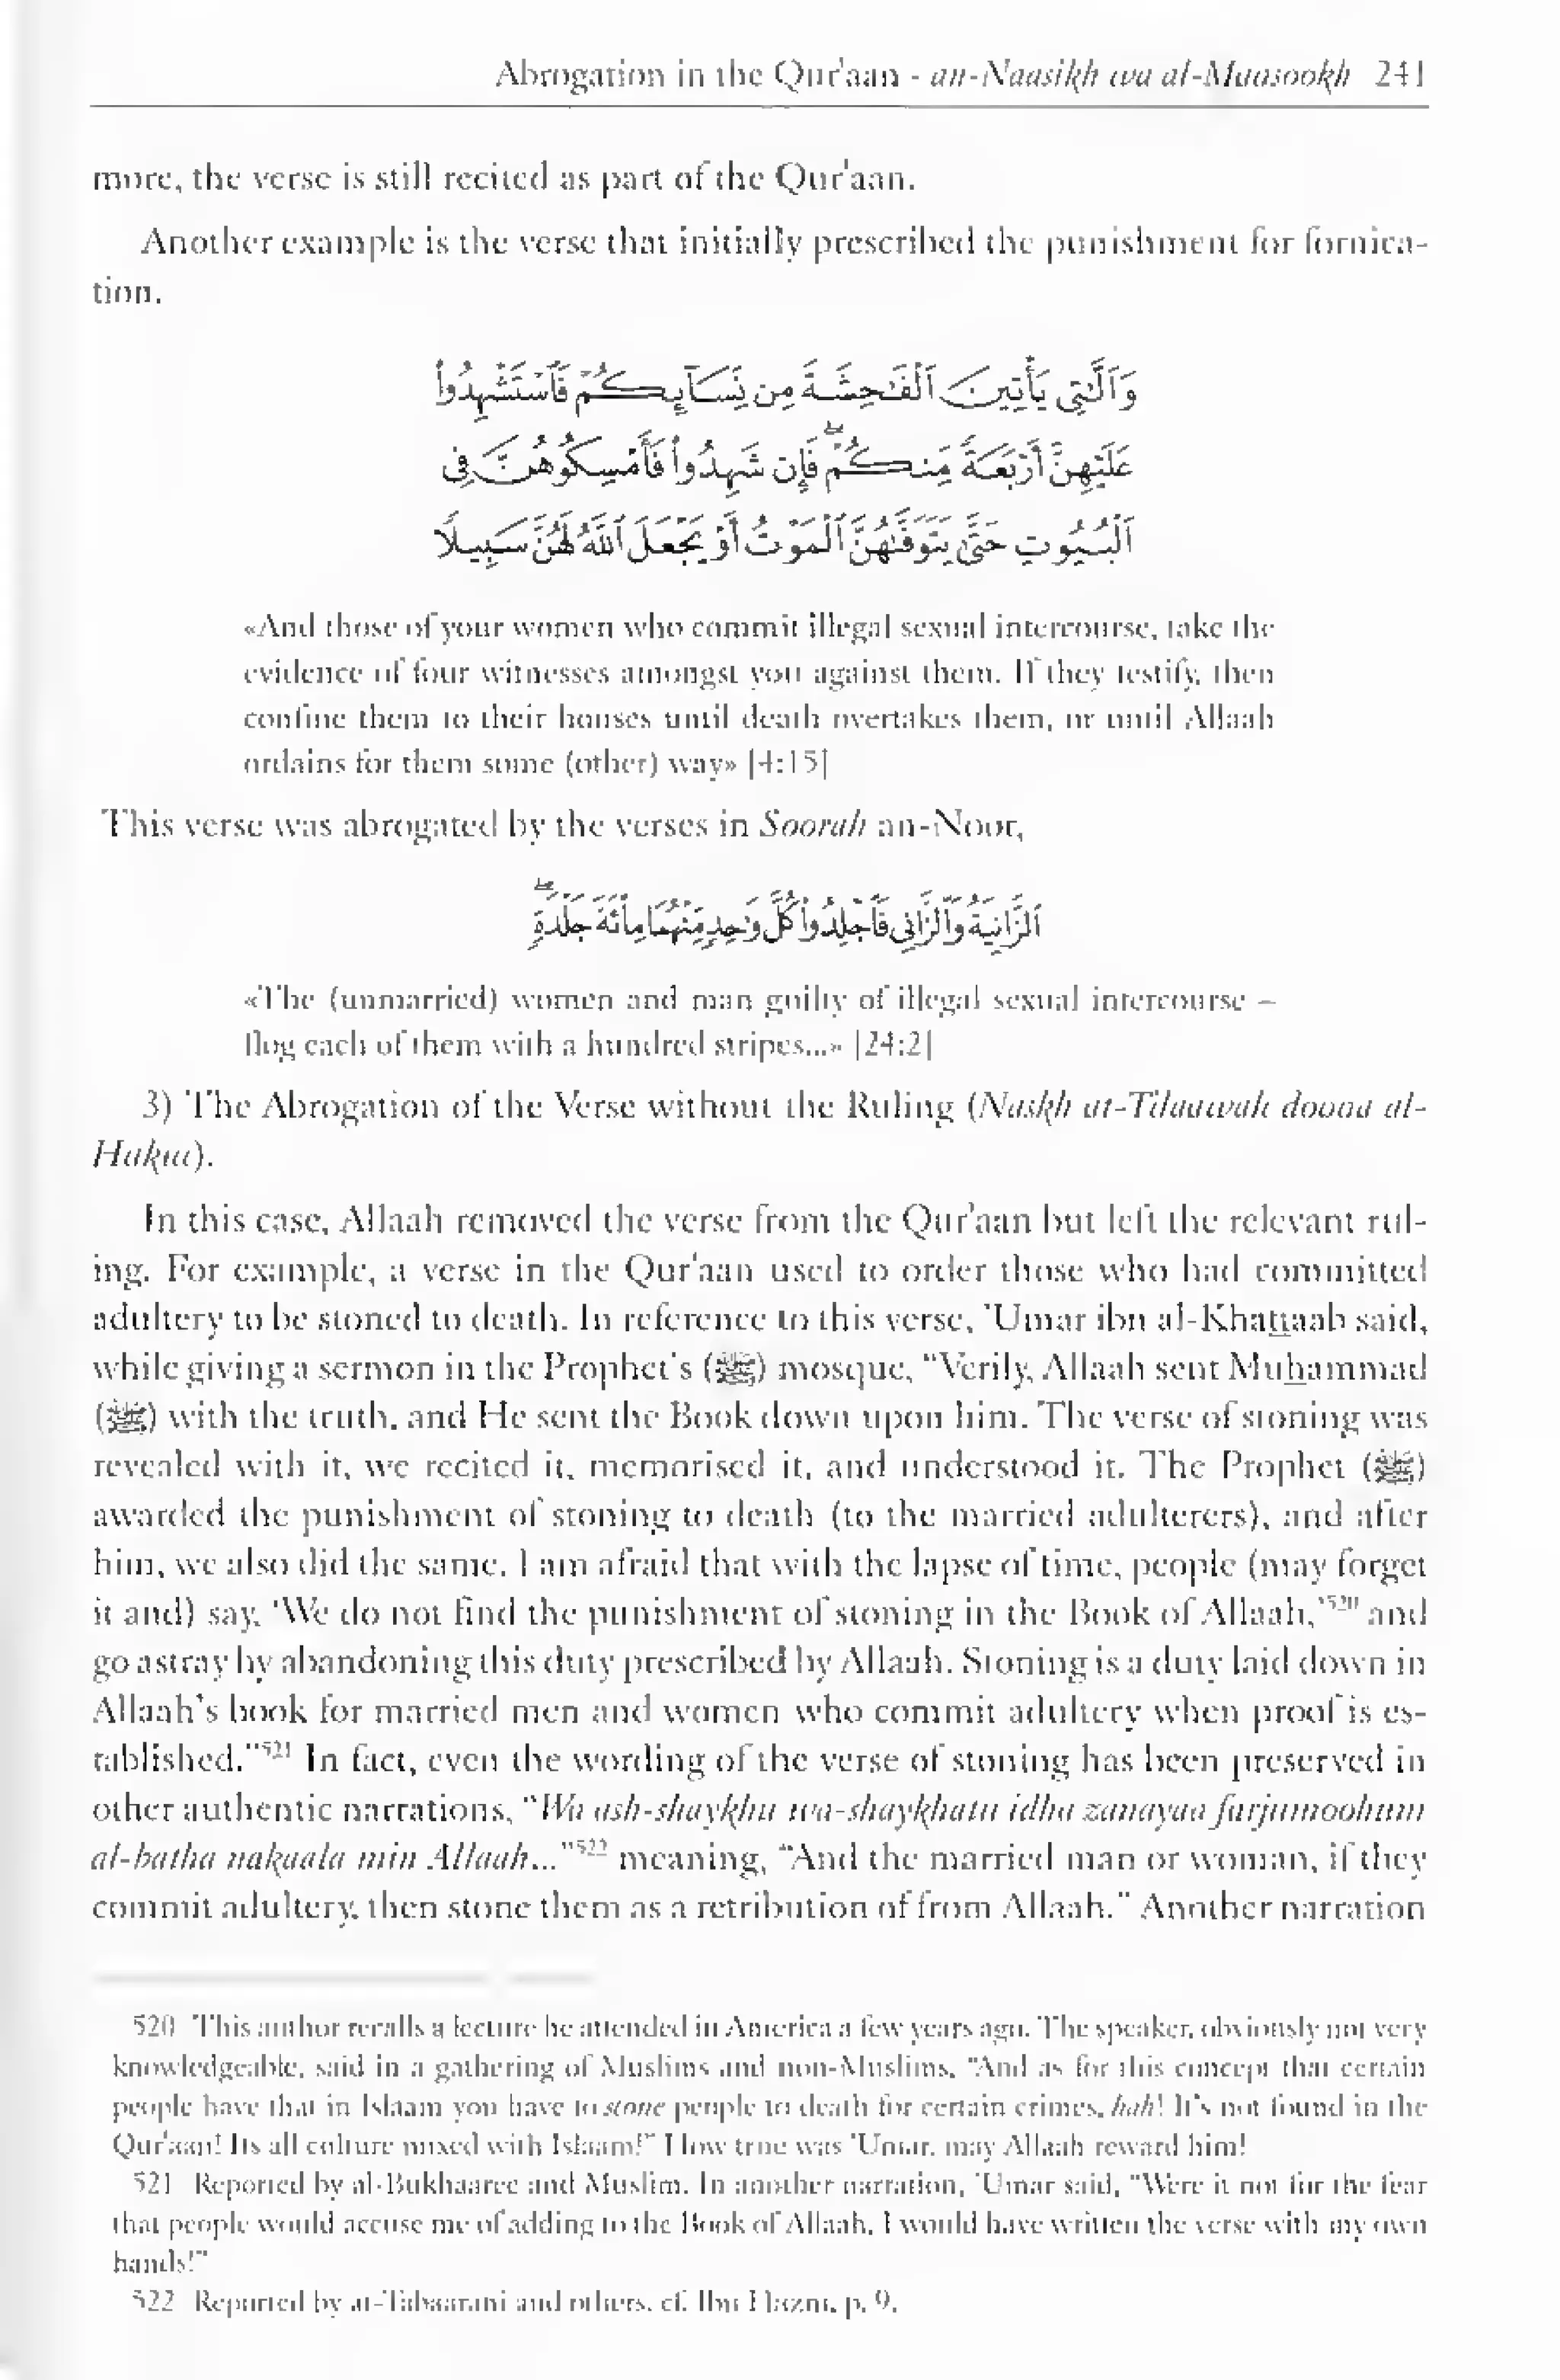 Abrogation in the Qur'aan - an-Naasikh wa al-Mansookh 241
more, the verse is still recited as part of the Qur'aan.
Another example is the verse that initially prescribed the punishment for fornica-
tion.
وَٱلَّٰتِى يَأْتِينَ ٱلْفَٰحِشَةَ مِن نِّسَآئِكُمْ فَٱسْتَشْهِدُوا۟
عَلَيْهِنَّ أَرْبَعَةً مِّنكُمْ ۖ فَإِن شَهِدُوا۟ فَأَمْسِكُوهُنَّ فِى
ٱلْبُيُوتِ حَتَّىٰ يَتَوَفَّىٰهُنَّ ٱلْمَوْتُ أَوْ يَجْعَلَ ٱللَّهُ لَهُنَّ سَبِيلًا
«And those of your women who commit illegal sexual intercourse, take the
evidence of four witnesses amongst you against them. If they testify, then
confine them to their houses until death overtakes them, or until Allaah
ordains for them some (other) way» [4:15]
This verse was abrogated by the verses in Soorah an-Noor,
ٱلزَّانِيَةُ وَٱلزَّانِى فَٱجْلِدُوا۟ كُلَّ وَٰحِدٍ مِّنْهُمَا مِا۟ئَةَ جَلْدَةٍ ۖ
«The (unmarried) women and man guilty of illegal sexual intercourse –
flog each of them with a hundred stripes...» [24:2]
3) The Abrogation of the Verse without the Ruling (Naskh at-Tilaawah doona al-
Hukm).
In this case, Allaah removed the verse from the Qur'aan but left the relevant rul-
ing. For example, a verse in the Qur'aan used to order those who had committed
adultery to be stoned to death. In reference to this verse, 'Umar ibn al-Khattaab said,
while giving a sermon in the Prophet's (ﷺ) mosque, "Verily, Allaah sent Muhammad
(ﷺ) with the truth, and He sent the Book down upon him. The verse of stoning was
revealed with it, we recited it, memorised it, and understood it. The Prophet (ﷺ)
awarded the punishment of stoning to death (to the married adulterers), and after
him, we also did the same. I am afraid that with the lapse of time, people (may forget
it and) say, 'We do not find the punishment of stoning in the Book of Allaah,'520 and
go astray by abandoning this duty prescribed by Allaah. Stoning is a duty laid down in
Allaah's book for married men and women who commit adultery when proof is es-
tablished."521 In fact, even the wording of the verse of stoning has been preserved in
other authentic narrations, "Wa ash-shaykhu wa-shaykhatu idha zanayaa farjumoohum
al-batha nakaala min Allaah..."522 meaning, "And the married man or woman, if they
commit adultery, then stone them as a retribution of from Allaah." Another narration
520 This author recalls a lecture he attended in America a few years ago. The speaker, obviously not very
knowledgeable, said in a gathering of Muslims and non-Muslims, "And as for this concept that certain
people have that in Islaam you have to stone people to death for certain crimes, hah! It's not found in the
Qur'aan! Its all culture mixed with Islaam!" How true was 'Umar, may Allaah reward him!
521 Reported by al-Bukhaaree and Muslim. In another narration, 'Umar said, "Were it not for the fear
that people would accuse me of adding to the Book of Allaah, I would have written the verse with my own
hands!"
522 Reported by at-Tabaaraani and others. cf. Ibn Hazm, p. 9.